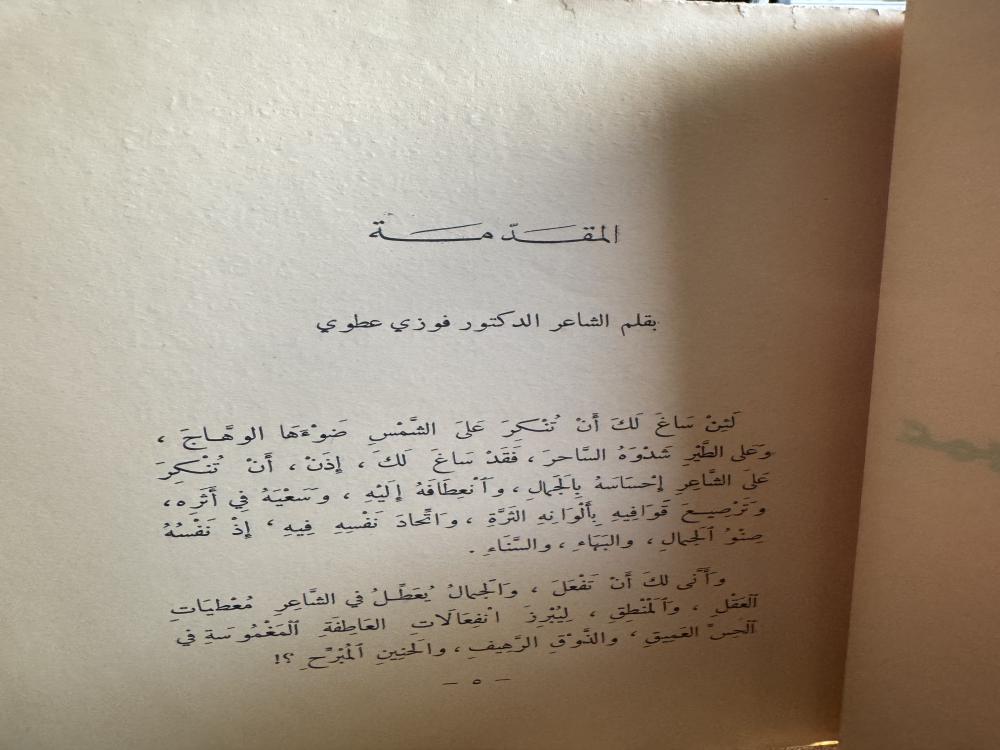 المقدّمة
بقلم الشاعر الدكتور فوزي عطوي
لَئِنْ سَاغَ لَكَ أَنْ تُنْكِرَ عَلىَ الشَّمْسِ ضَوْءَهَا الوهَّاجَ ،
وَعَلى الطَّيْرِ شَدْوَهُ السَّاحرَ ، فَقَدْ سَاغَ لَكَ ، إِذَنْ ، أَنْ تُنْكِرَ
عَلىَ الشَّاعرِ إحْسَاسَهُ بِالجَمالِ ، وَٱنْعِطَافَهُ إلَيْهِ ، وَسَعْيَهُ فِي أَثَرِه ،
وَتَرْصِيعَ قَوَافِيهِ بِأَلْوَانِهِ الثَرَّةِ ، وَاتِّحادَ نَفْسِهِ فِيهِ ، إذْ نَفْسُهُ
صِنْوُ ٱلجَمالِ ، والبَهَاءِ ، والسَّنَاءِ .
وَأَنَّى لكَ أَنْ تَفْعَلَ ، وَالجَمالُ يُعَطِّلُ في الشَّاعِرِ مُعْطيَاتِ
ٱلعَقْلِ ، وَٱلمَنْطِقِ ، لِيُبْرِزَ انْفِعَالَاتِ العَاطِفَةِ ٱلمَغْمُوسَةِ في
ٱلحِسِّ العَمِيقِ ، والذَّوْقِ الرَّهِيفِ ، والحَنِينِ ٱلمُبَرِّحِ ؟!
— ٥ —